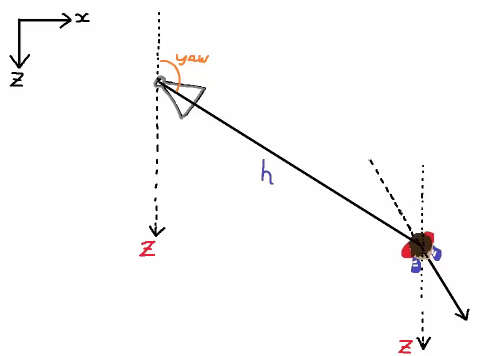 x
z
yaw
h
z
z